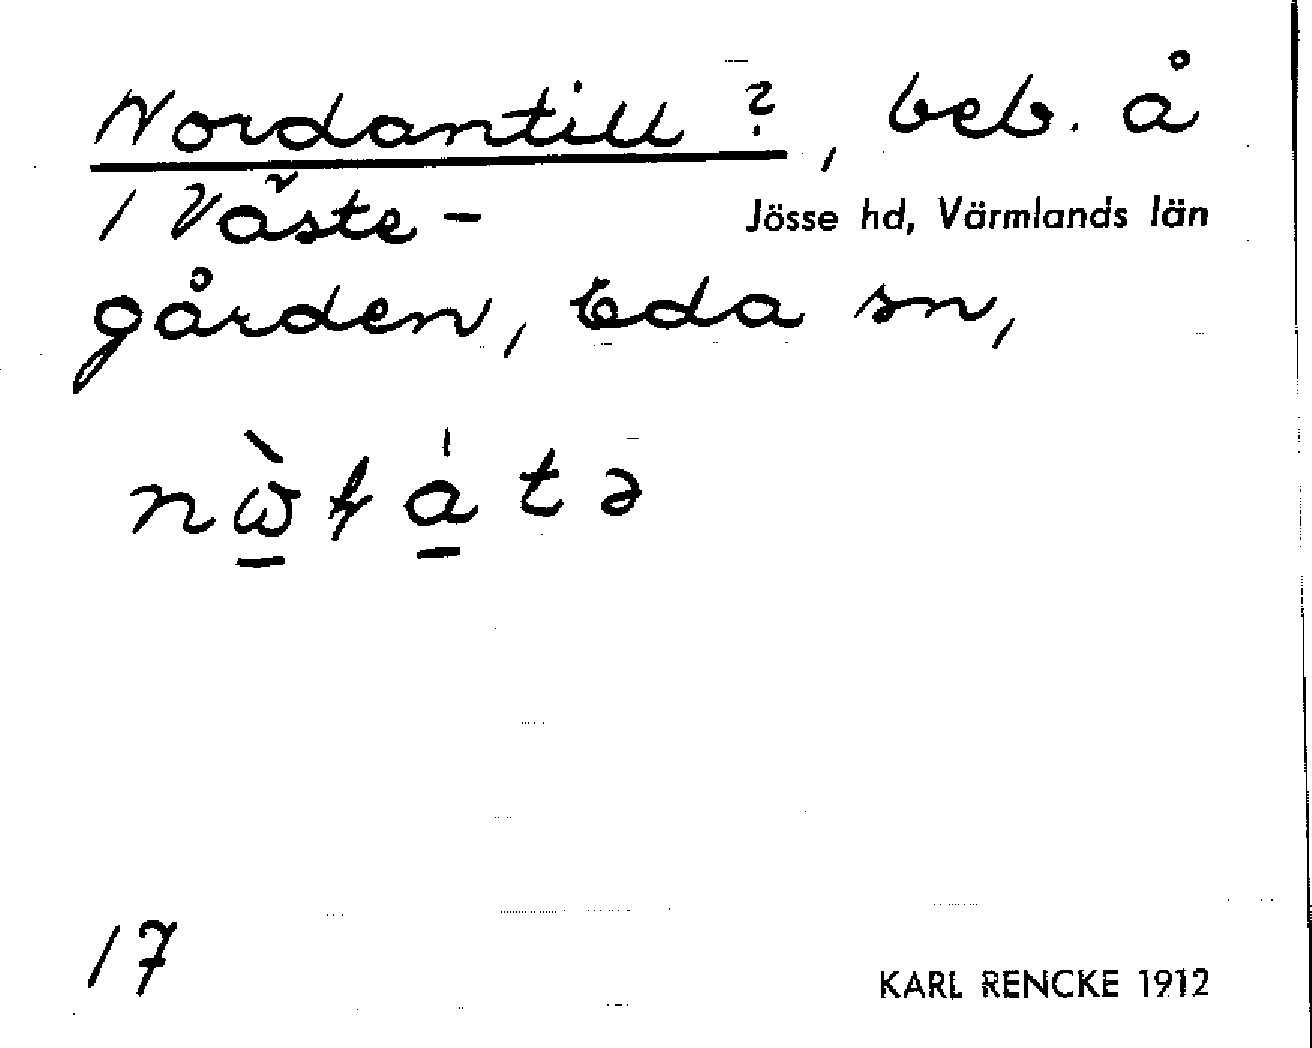 Nordantill ?, beb. å
1 Väste-
Jösse hd, Värmlands län
gården, Eda sn,
17
KARL RENCKE 1912